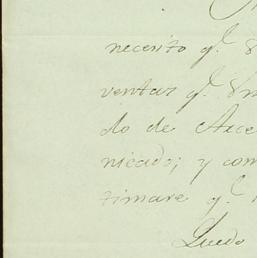 necesito q.e
ventas q.e
do de Asce
nicado; y com
timare q.e
Quedo